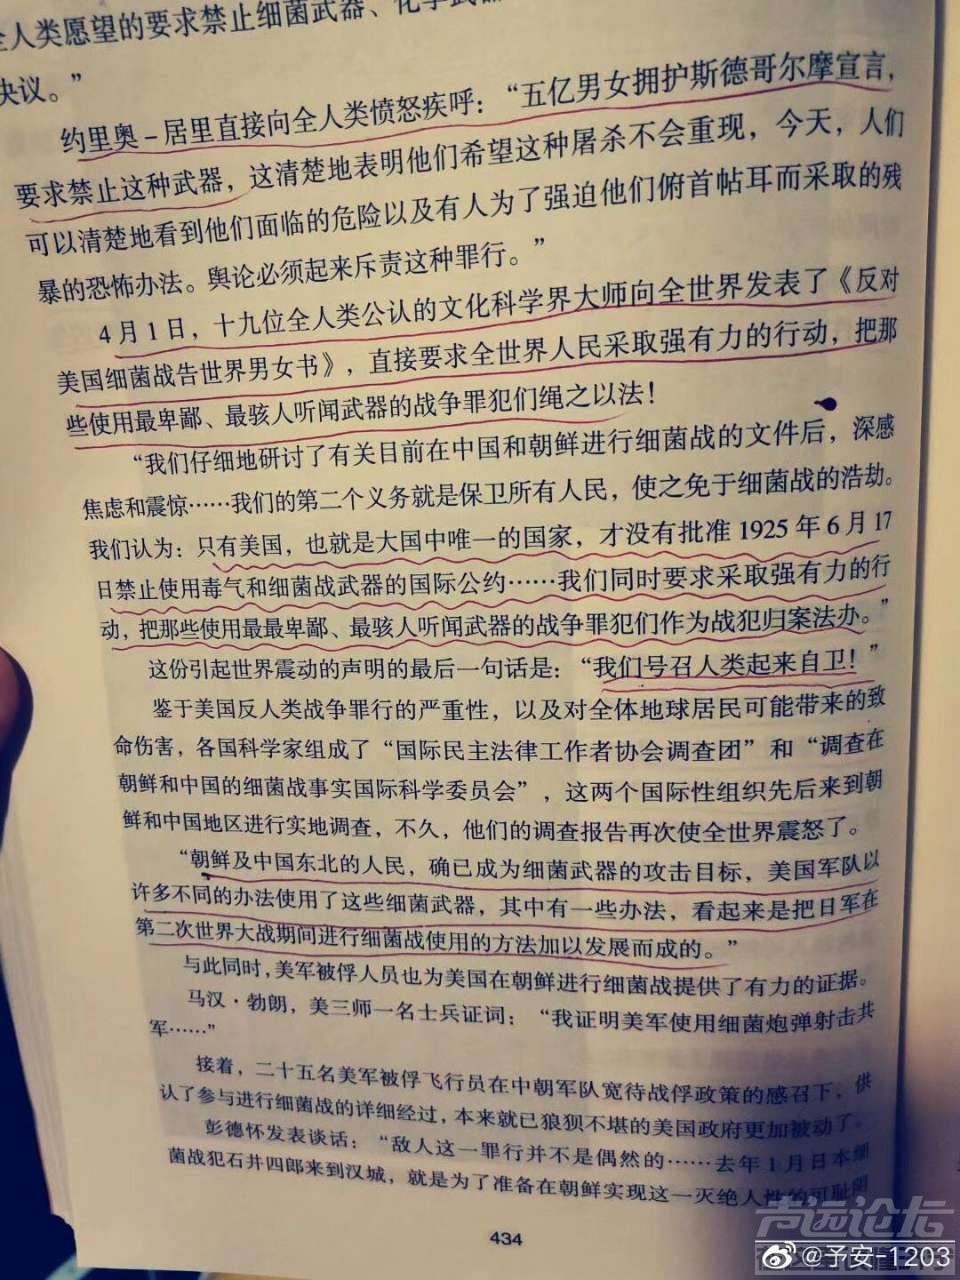 全人类愿望的要求禁止细菌武器、化学武器
决议。”
约里奥－居里直接向全人类愤怒疾呼：“五亿男女拥护斯德哥尔摩宣言，
要求禁止这种武器，这清楚地表明他们希望这种屠杀不会重现，今天，人们
可以清楚地看到他们面临的危险以及有人为了强迫他们俯首帖耳而采取的残
暴的恐怖办法。舆论必须起来斥责这种罪行。”
4月1日，十九位全人类公认的文化科学界大师向全世界发表了《反对
美国细菌战告世界男女书》，直接要求全世界人民采取强有力的行动，把那
些使用最卑鄙、最骇人听闻武器的战争罪犯们绳之以法！
“我们仔细地研讨了有关目前在中国和朝鲜进行细菌战的文件后，深感
焦虑和震惊……我们的第二个义务就是保卫所有人民，使之免于细菌战的浩劫。
我们认为：只有美国，也就是大国中唯一的国家，才没有批准1925年6月17
日禁止使用毒气和细菌战武器的国际公约……我们同时要求采取强有力的行
动，把那些使用最最卑鄙、最骇人听闻武器的战争罪犯们作为战犯归案法办。”
这份引起世界震动的声明的最后一句话是：“我们号召人类起来自卫！”
鉴于美国反人类战争罪行的严重性，以及对全体地球居民可能带来的致
命伤害，各国科学家组成了“国际民主法律工作者协会调查团”和“调查在
朝鲜和中国的细菌战事实国际科学委员会”，这两个国际性组织先后来到朝
鲜和中国地区进行实地调查，不久，他们的调查报告再次使全世界震怒了。
“朝鲜及中国东北的人民，确已成为细菌武器的攻击目标，美国军队以
许多不同的办法使用了这些细菌武器，其中有一些办法，看起来是把日军在
第二次世界大战期间进行细菌战使用的方法加以发展而成的。”
与此同时，美军被俘人员也为美国在朝鲜进行细菌战提供了有力的证据。
马汉·勃朗，美三师一名士兵证词：“我证明美军使用细菌炮弹射击共
军……”
接着，二十五名美军被俘飞行员在中朝军队宽待战俘政策的感召下，供
认了参与进行细菌战的详细经过，本来就已狼狈不堪的美国政府更加被动了。
彭德怀发表谈话：“敌人这一罪行并不是偶然的……去年1月日本细
菌战犯石井四郎来到汉城，就是为了准备在朝鲜实现这一灭绝人性的可耻阴
434
@予安-1203